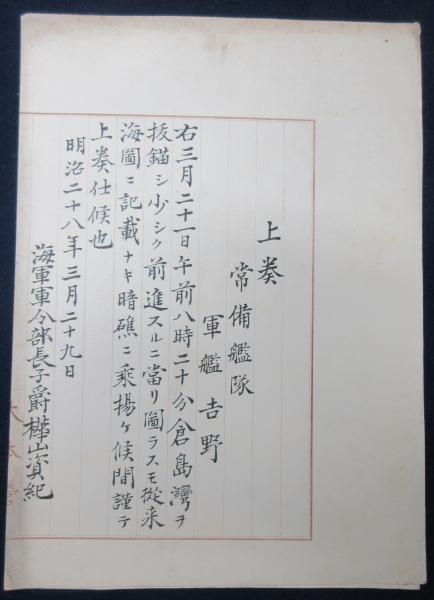 上奏
常備艦隊
軍艦吉野
右三月二十一日午前八時二十分倉島灣ヲ
抜錨シ少シク前進スルニ當リ圖ラスモ從来
海圖ニ記載ナキ暗礁ニ乘揚ケ候間謹テ
上奏仕候也
明治二十八年三月二十九日
海軍軍令部長子爵樺山資紀
大本營